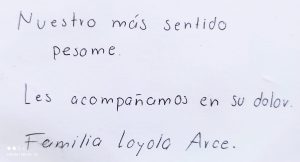 Nuestro más sentido
pesame.
Les acompañamos en su dolor.
Familia Loyola Arce.